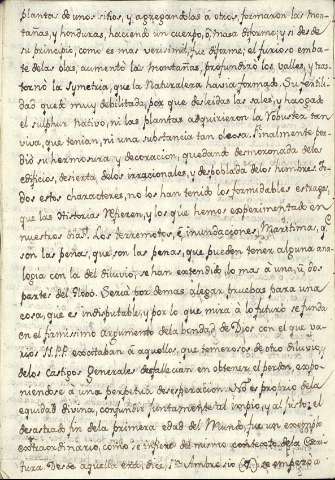 plantas de unos sitios, y agregandolas á otros, formaron las mon-
tañas, y honduras, haciendo un cuerpo, ò masa diforme; y si desde
su principio, como es mas verisimil, fue diforme; el furioso emba-
te de las olas, aumentò las montañas, profundizò los valles, y tras-
tornò la symetria, que la Naturaleza havia formado. Su fertili-
dad quedò muy debilitada, por que desleidas las sales, y
el sulphur nativo, ni las plantas adquirieron la robustez tan
viva, que tenian, ni una substancia tan oleosa. Finalmente per-
diò su hermosura, y decoracion, quedando desmoronada de los
edificios, desierta de los irracionales, y despoblada de los hombres. To-
dos estos characteres, no los han tenido los formidables estragos,
que las Historias refieren, y los que hemos experimentado en
nuestros dias. Los terremotos, è inundaciones Maritimas, q.
son las penas, que pueden tener alguna ana-
logia con la del diluvio, se han extendido, lo mas a una, ù dos
partes del Globo. Seria por demas, alegar pruebas para una
cosa, que es indisputable, y por lo que mira à lo futuro se funda
en el firmissimo argumento de la bondad de Dios con el que va-
rios SS. PP. exôrtaban á aquellos, que temerosos de otro diluvio,
de los Castigos Generales desfallecian en obtener el perdon, expo-
niendose à una perpetua desesperacion. No es proprio de la
equidad divina, confundir juntamente al impio, y al justo; el
desastrado fin de la primera edad del Mundo, fue un exemplo
extraordinario, como se infiere del mismo contexto de la Escri-
tura. Desde aquella era, dice, Sn. Ambrosio se empezò a